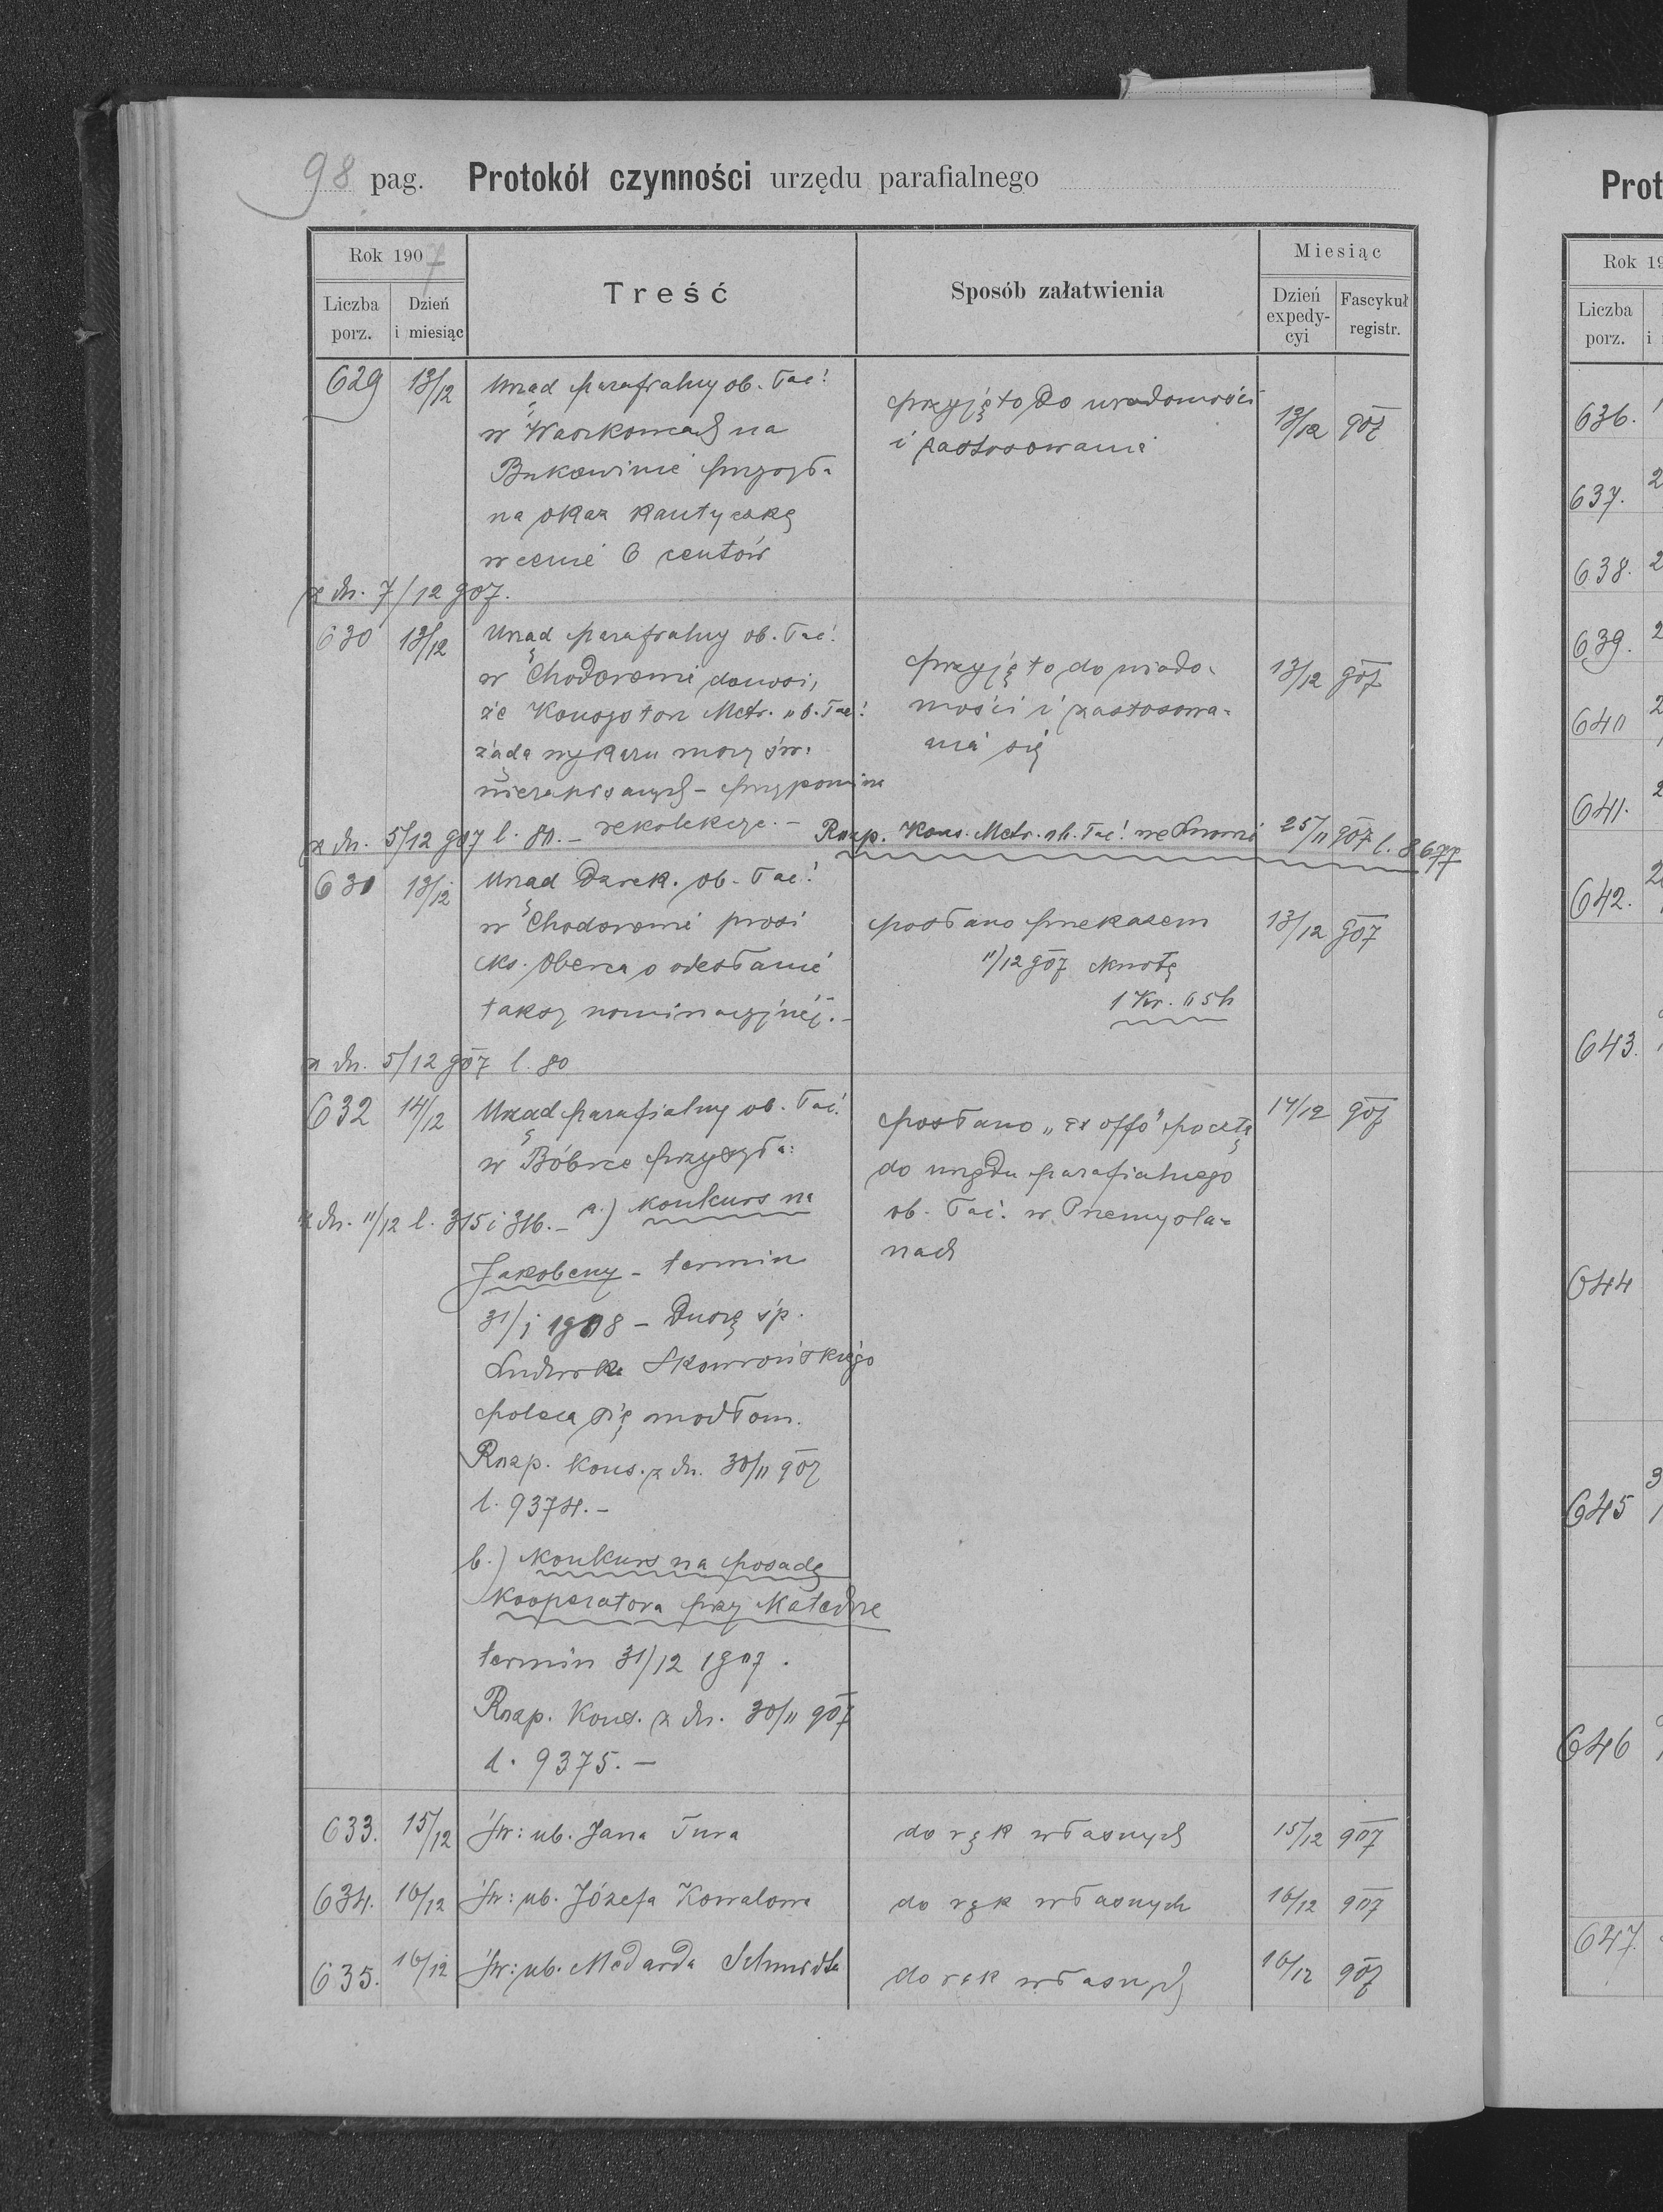 98 pag. Protokół czynności urzędu parafialnego
Rok 1907
Liczba porz.
Dzień i miesiąc
Treść
Sposób załatwienia
Miesiąc
Dzień expedycyi
Fascykuł registr.
629 13/12 Urząd parafialny ob. łać: przyjęto do wiadomości 13/12 907
w Waszkowcach na i zastosowania
Bukowinie przysyła
na okaz kantyczkę
w cenie 6 centów
z dn. 7/12 907.
630 13/12 Urząd parafialny ob. łać:
w Chodorowie donosi, przyjęto do wiado- 13/12 907
że Konsystorz Metr. ob. łać: mości i zastosowa-
żąda wykazu mszy św. nia się
niezapisanych - przypomina
z dn. 5/12 907 l. 80. - rekolekcye. - Rozp. Kons. Metr. ob. łać: we Lwowie 25/11 907 l. 8677
631 13/12 Urząd Dziek. ob. łać:
w Chodorowie prosi posłano przekazem 13/12 907
ks. o odesłanie 11/12 907 kwotę
taksy nominacyjnej. - 1 Kr. 65h
z dn. 5/12 907 l. 80
632 14/12 Urząd parafialny ob. łać: posłano „ex offo" pocztą 14/12 907
w Bóbrce przysyła: do urzędu parafialnego
z dn. 11/12 l. 315 i 316. - a.) konkurs na ob. łać: w Przemyśla-
Jakobeny - termin nach
31/1 1908 - Duszę śp.
Ludwika Skowrońskiego
poleca się modłom.
Rozp. Kons. z dn. 30/11 907
l. 9374. -
b.) Konkurs na posadę
Kooperatora przy Katedrze
termin 31/12 1907.
Rozp. Kons. z dn. 30/11 907
l. 9375. -
633. 15/12 Św: ub. Jana Tura do rąk własnych 15/12 907
634. 16/12 Św: ub. Józefa Kowalowa do rąk własnych 16/12 907
635. 16/12 Św: ub. Medarda Schmidta do rąk własnych 16/12 907
Prot
Rok 19
Liczba porz.
i
636.
637. 2
638. 2
639. 2
640 2
641. 2
642. 2
643.
644
645 3
646
647.